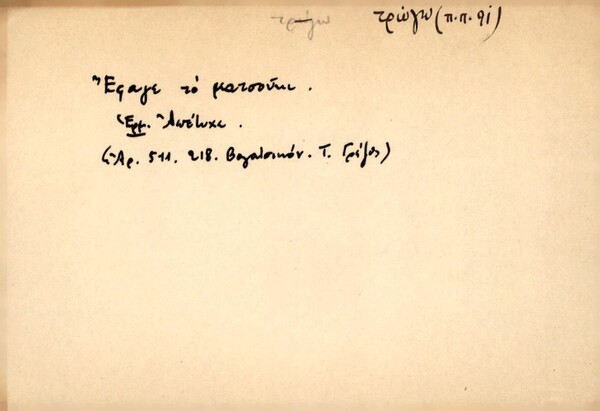 τρώγω τρώγω (π.π. 91)
Ἔφαγε τό ματσούκι.
(Ἑρμ. Ἀπέτυχε.
(Ἀρ. 511. 218. Βογατσικόν. Τ. Γρέζος)